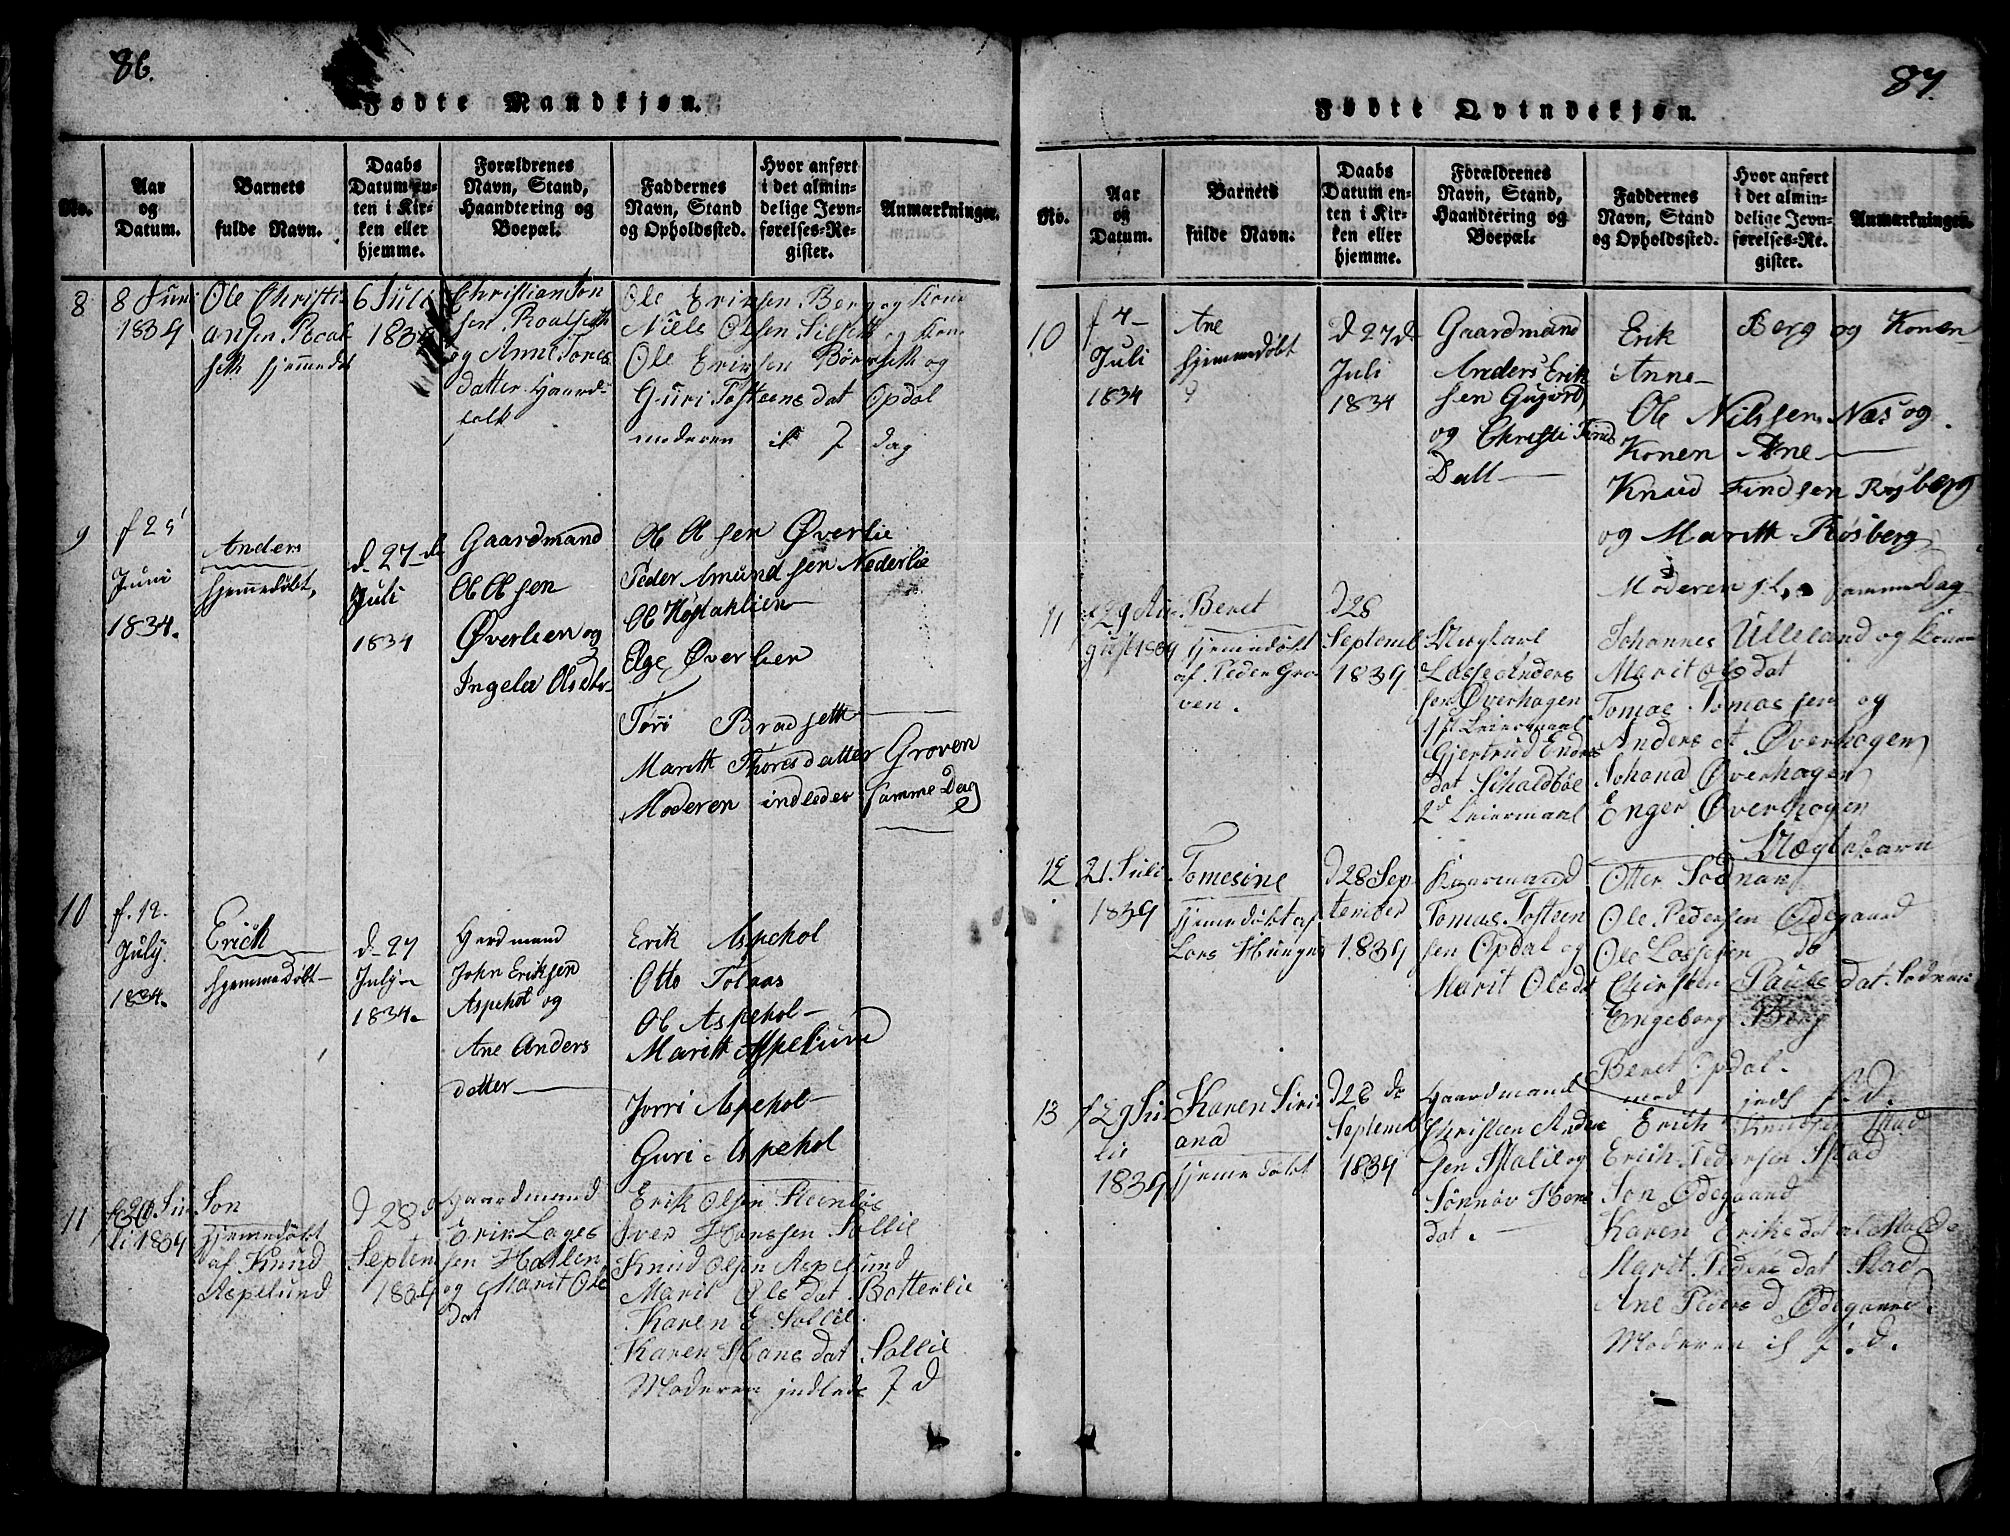 86.
Fødte Mandkjøn.
No.
Aar
og
Datum.
Barnets
fulde Navn.
Daabs
Datum en-
ten i Kir-
ken eller
hjemme.
Forældrenes
Navn, Stand,
Haandtering og
Boepæl.
Faddernes
Navn, Stand
og Opholdssted.
Hvor anført
i det almin-
delige Jevn-
førelses-Re-
gister.
Anmærkninger.
8
8 Juni
1834
Ole Christi
ansen Roal
seth hjemmedøbt
6 Juli
1834
Christian Jon
sen Roalseth
og Anne Jones
datter Gaard-
folk
Ole Eriksen Berg og Kone
Niels Olsen Silseth og Kone
Ole Eriksen Børseth og
Guri Tostensdat Opdal
moderen il 7 dag
9
f 25
Juni
1834.
Anders
hjemmedøbt,
d. 27 de
Juli
1834
Gaardmand
Ol Olsen
Øverlien og
Ingela Olsdtr
Ol Olsen Øverlie
Peder Amundsen Nederlie
Ol Høstaklien
Elge Øverlien
Tøri Bradseth
Marith Thoresdatter Groven
Moderen indleder samme Dag
10
f. 12.
July
1834.
Erich
hjemmedøbt
d. 27
July
1834.
Gardmand
John Eriksen
Aspehol og
Ane Anders
datter
Erik Aspehol
Otto Tolaas
Ol Aspehol
Marith Aspelund
Jorri Aspehol
Guri Aspehol
11
Ju
li 1834
Jon
hjemmedøbt
af Knud
Aspelund
d 28 d
Septem
1834
Gaardmand
Erik Lages
sen Hatlen
og Marit Ols
dat
Erik Olsen Steenløs
Iver Hanssen Sollie
Knud Olsen Aspelund
Marit Olsdat Botterlie
Karen E Sollie
Karen Hansdat Sollie
Moderen jndlede 7 d
87.
Fødte Qvindekjøn.
No.
Aar
og
Datum.
Barnets
fulde Navn.
Daabs
Datum en-
ten i Kir-
ken eller
hjemme.
Forældrenes
Navn, Stand,
Haandtering og
Boepæl.
Faddernes
Navn, Stand
og Opholdssted.
Hvor anført
i det almin-
delige Jevn-
førelses-Re-
gister.
Anmærkninger.
10
f 4
Juli
1834
Ane
hjemmedøbt
d 27 d
Juli
1834
Gaardmand
Anders Erik
sen Gujord
og Christi Finds
Datt
Erik Berg og Konen
Anne
Ol Nilssen Næs og
Konen Ane
Knud Findsen Røsberg
og Marith Røsberg
Moderen samme Dag
11
29 Au
gust 1834
Beret
hjemmedøbt
af Peder Gro
ven.
d 28
Septemb
1834
Ungkarl
Lasse Anders
sen Øverhagen
1st Leiermaal
Gjertrud Endres
dat Schaldbøe
2d Leiermaal
Johannes Ulleland og Konen
Marit Olsdat
Tomas Tomassen og
Anders A Øverhagen
Johana Øverhagen
Enger Øverhagen
Uægtebarn
12
21 Juli
1834
Tomesine
hjemedøbt af
Lars Hungnes
d 28 Sep
tember
1834
Gaarmand
Tomas Tosteen
sen Opdal og
Marit Olsdt
Otter Sødnan
Ole Pedersen Ødegaard
Ole Lassesen do
Chirsten Paulsdat Sødnan
Engeborg Berg
Beret Opdal.
mod jnds f. d.
13
f 29 Ju
lii
1834
Karen Siri
ana
hjemedøbt
d 28 de
Septemb
1834
Gaardmand
Christen Ander
sen Stalie og
Sønnøv Hans
dat.
Erich Knudsen Stad
Erich Pedersen Stad
Jon Ødegaard
Karen Eriksdat
Marit Pedersdat Stad
Ane Peders d Ødegaard.
Moderen il f. d.